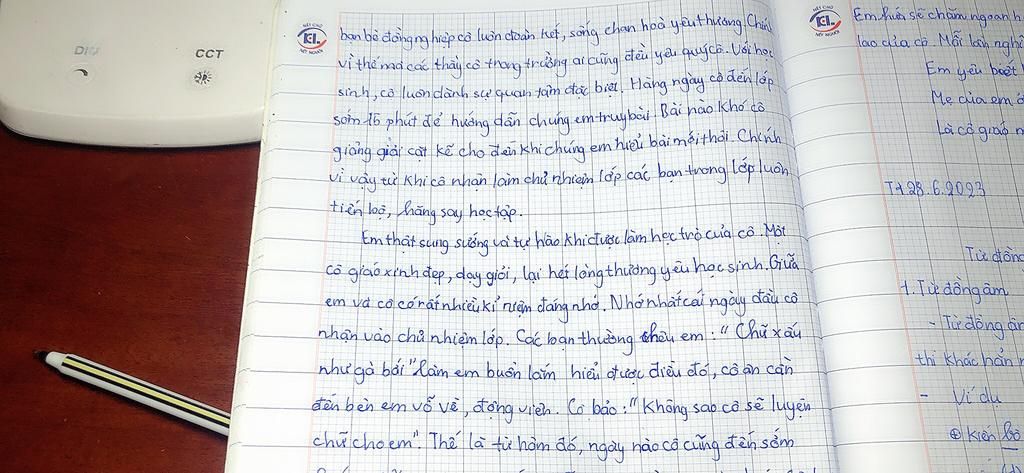 DIM
CCT
NÉT CHỮ
KL
NẾT NGƯỜI
bạn bè đồng nghiệp cô luôn đoàn kết, sống chan hoà yêu thương. Chính
vì thế mà các thầy cô trong trường ai cũng đều yêu quý cô. Với học
sinh, cô luôn dành sự quan tâm đặc biệt. Hàng ngày cô đến lớp
sớm 15 phút để hướng dẫn chúng em truy bài. Bài nào khó cô
giảng giải cặt kẽ cho đến khi chúng em hiểu bài mới thôi. Chính
vì vậy từ khi cô nhận làm chủ nhiệm lớp các bạn trong lớp luôn
tiến bộ, hăng say học tập.
Em thật sung sướng và tự hào khi được làm học trò của cô. Một
cô giáo xinh đẹp, dạy giỏi, lại hết lòng thương yêu học sinh. Giữa
em và cô có rất nhiều kỉ niệm đáng nhớ. Nhớ nhất cái ngày đầu cô
nhận vào chủ nhiệm lớp. Các bạn thường chêu em: "Chữ xấu
như gà bới" làm em buồn lắm hiểu được điều đó, cô ân cần
đến bên em vỗ về, động viên. Cô bảo: "Không sao cô sẽ luyện
chữ cho em". Thế là từ hôm đó, ngày nào cô cũng đến sớm
NÉT CHỮ
KL
NẾT NGƯỜI
Em hứa sẽ chăm ngoan h
lao của cô. Mỗi lần ngh
Em yêu biết
Mẹ của em
Là cô giáo
T4 28.6.2023
Từ đồng
1. Từ đồng âm
- Từ đồng âm
thì khác hẳn n
- Ví dụ
⊕ Kiến bò